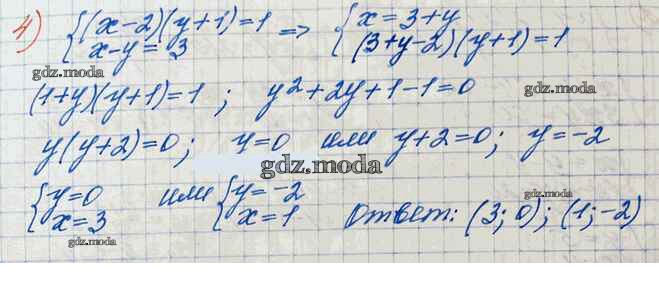 4) { (x-2)(y+1)=1 => { x=3+y
x-y=3 (3+y-2)(y+1)=1
gdz.moda
(1+y)(y+1)=1 ; y²+2y+1-1=0
gdz.moda
y(y+2)=0; y=0 или y+2=0; y=-2
gdz.moda
{ y=0 или { y=-2
x=3 x=1 Ответ: (3; 0); (1; -2)
gdz.moda
gdz.moda